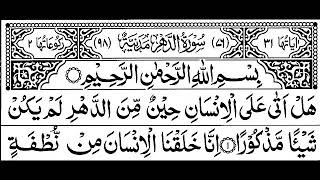 اٰیَاتُهَا ۳۱ (۷۶) سُوْرَةُ الدَّهْرِ مَدَنِيَّةٌ (۹۸) رُكُوْعَاتُهَا ۲
بِسْمِ اللّٰهِ الرَّحْمٰنِ الرَّحِيْمِ
هَلْ اَتٰى عَلَى الْاِنْسَانِ حِيْنٌ مِّنَ الدَّهْرِ لَمْ يَكُنْ
شَيْـًٔا مَّذْكُوْرًا ۝۱ اِنَّا خَلَقْنَا الْاِنْسَانَ مِنْ نُّطْفَةٍ